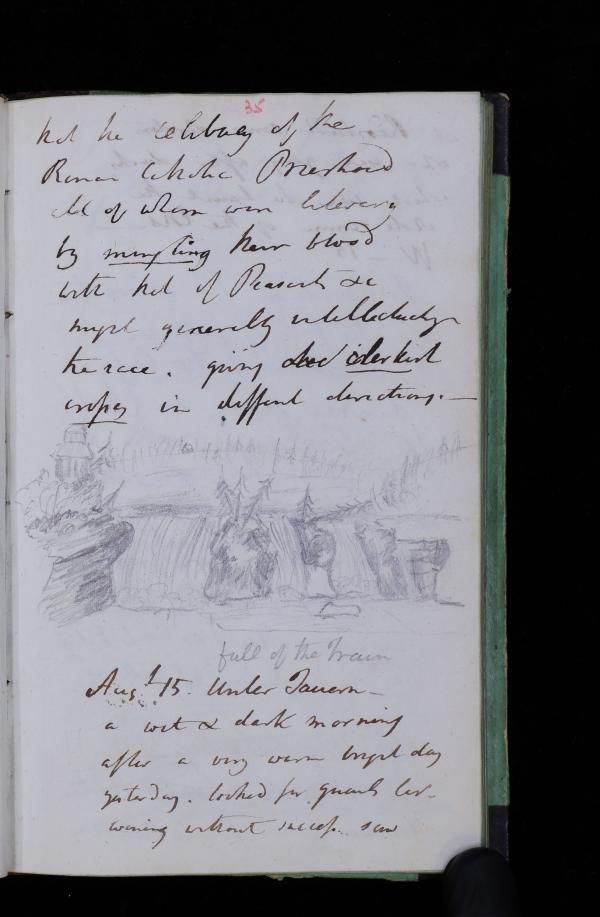 35
that the celibacy of the
Roman Catholic Priesthood
all of whom were literary
by mingling their blood
with that of Peasants &c
might generally intellectualize
the race. giving
in different directions.
fall of the Traun
Augt. 15. Unter Tauern
a wet & dark morning
after a very warm bright day
yesterday. looked for
without success. saw